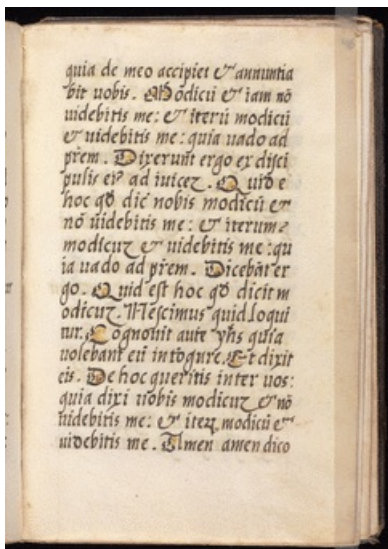 quia de meo accipiet & annuntia
bit uobis. Modicū & iam nō
uidebitis me: & iterū modicū
& uidebitis me: quia uado ad
prēm. Dixerunt ergo ex disci
pulis eiꝰ ad iuicez. Quid e
hoc qd̄ dic̄ nobis modicū &
nō uidebitis me: & iterum
modicuz & uidebitis me: qu
ia uado ad prēm. Dicebāt er
go. Quid est hoc qd̄ dicit m
odicuz. Nescimus quid loqui
tur. Cognouit aute yhs quia
uolebant eū intogure. Et dixit
eis. De hoc queritis inter uos:
quia dixi uobis modicuz & nō
uidebitis me: & iteꝝ modicū &
uidebitis me. Amen amen dico